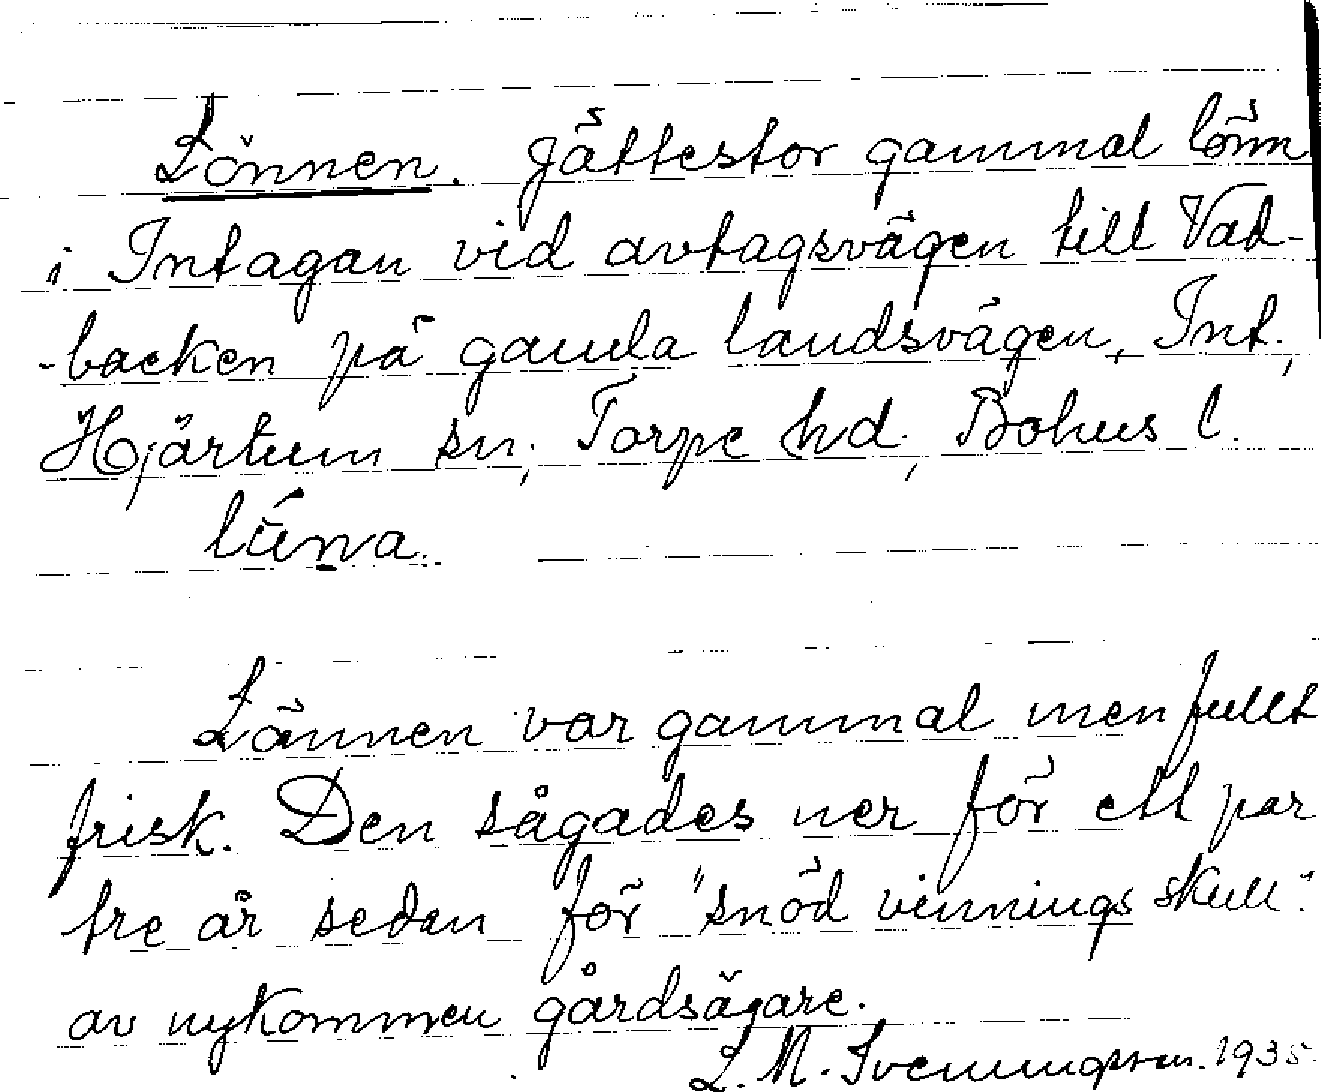 Lönnen. Jättestor gammal lönn
i Intagan vid avtagsvägen till Vad-
-backen på gamla landsvägen, Int.,
Hjärtum sn; Torpe hd., Bohus l.
Lönnen var gammal men fullt
frisk. Den sågades ner för ett par
tre år sedan för "snöd vinnings skull"
av nykommen gårdsägare.
L. M. Svenungsson. 1935.